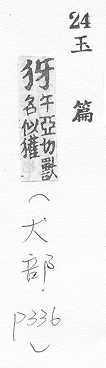 24
玉篇
犽 午亞切獸
名似獾
(犬部.
p336)